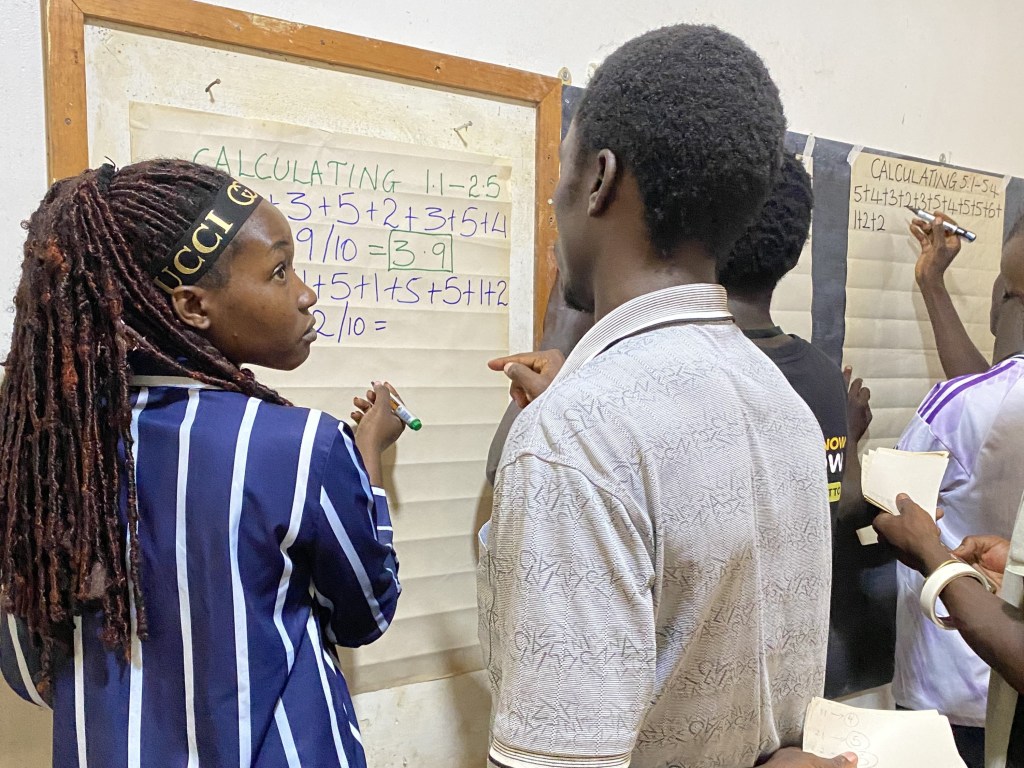 CALCULATING 1.1-2.5
+3+5+2+3+5+4
9/10 = 3.9
+5+1+5+5+1+2
2/10 =
UCCI G
CALCULATING 5.1-5.4
5+4+3+2+3+5+4+5+5+6+
1+2+2
NOW
OW
TTO